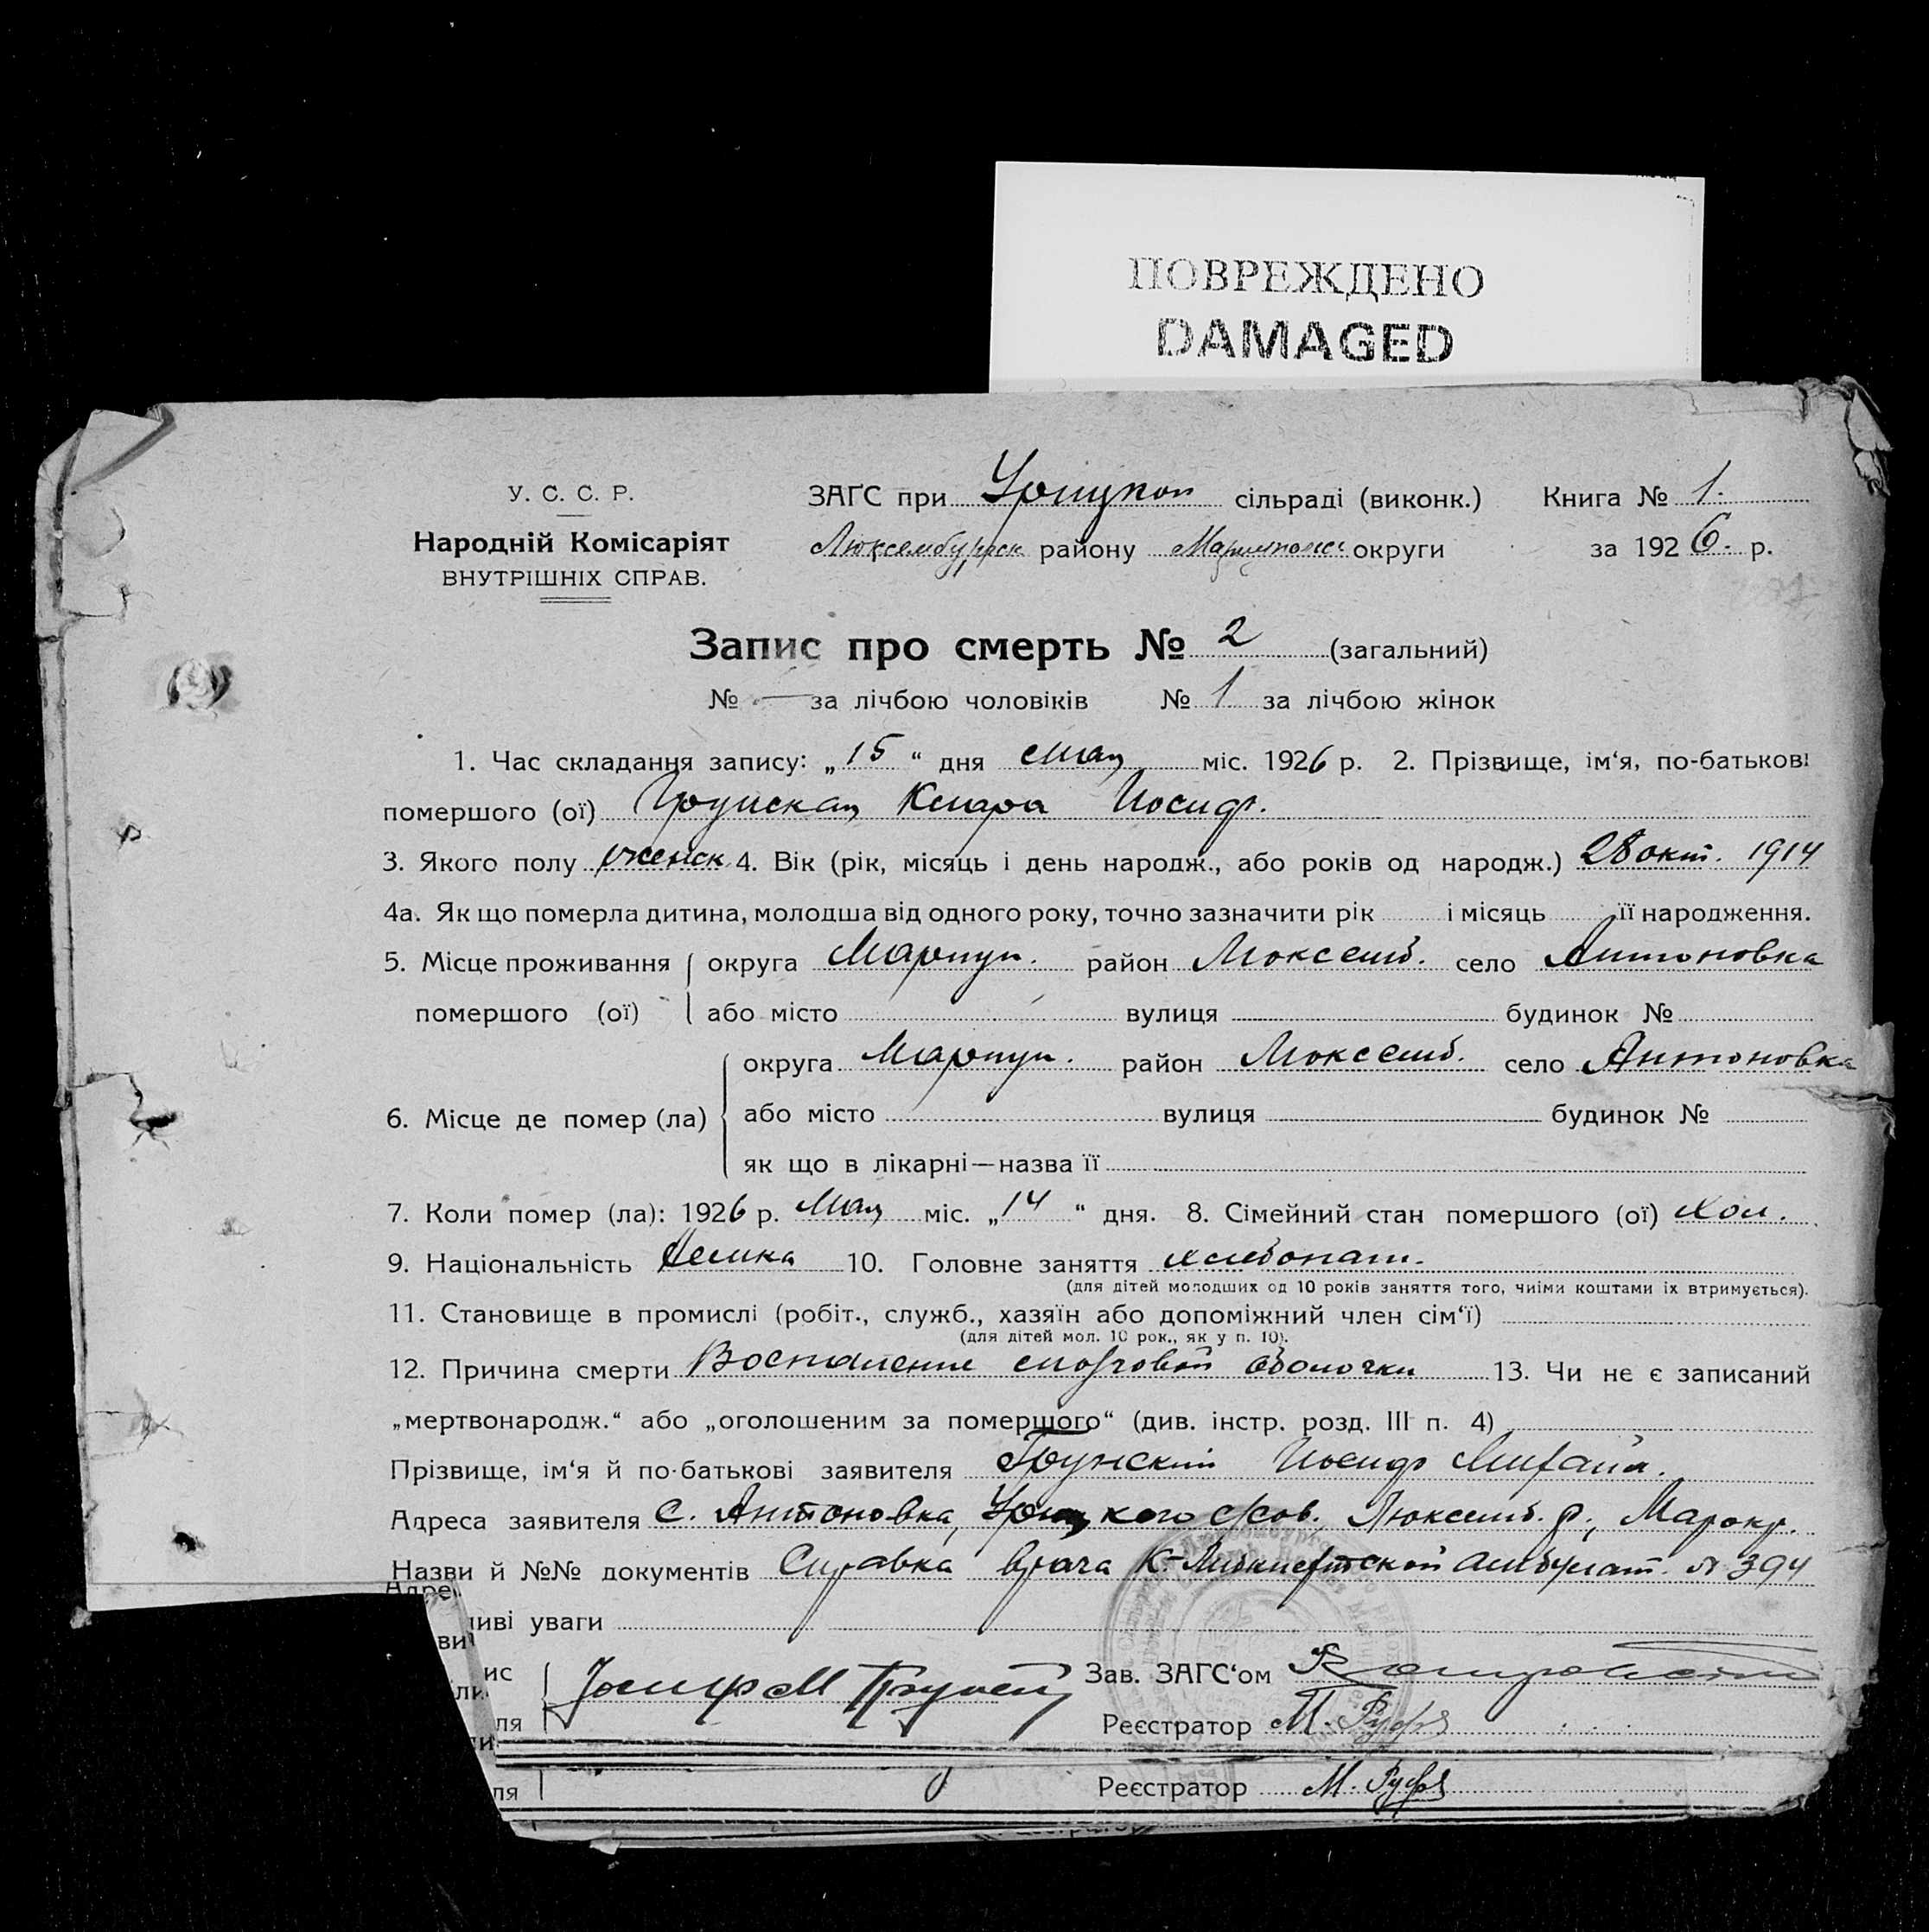 ПОВРЕЖДЕНО
DAMAGED
У. С. С. Р. ЗАҐС при Урицкой сільраді (виконк.) Книга № 1.
Народній Комісаріят Люксембургск району Мариупольс округи за 1926. р.
ВНУТРІШНІХ СПРАВ.
Запис про смерть № 2 (загальний)
№ — за лічбою чоловіків № 1 за лічбою жінок
1. Час складання запису: „15“ дня мая міс. 1926 р. 2. Прізвище, ім‘я, по-батькові
помершого (ої) Грунская Клара Иосиф.
3. Якого полу женск 4. Вік (рік, місяць і день народж., або років од народж.) 28 окт. 1914
4а. Як що померла дитина, молодша від одного року, точно зазначити рік і місяць її народження.
5. Місце проживання округа Мариуп. район Люксемб. село Антоновка
помершого (ої) або місто вулиця будинок №
округа Мариуп. район Люксемб. село Антоновка
6. Місце де помер (ла) або місто вулиця будинок №
як що в лікарні—назва її
7. Коли помер (ла): 1926 р. Мая міс. „14“ дня. 8. Сімейний стан помершого (ої) хол.
9. Національність Немка 10. Головне заняття хлебопаш.
(для дітей молодших од 10 років заняття того, чиїми коштами їх втримується).
11. Становище в промислі (робіт., служб., хазяїн або допоміжний член сім‘ї)
(для дітей мол. 10 рок., як у п. 10).
12. Причина смерти Воспаление мозговой оболочки 13. Чи не є записаний
„мертвонародж.“ або „оголошеним за помершого“ (див. інстр. розд. III п. 4)
Прізвище, ім‘я й по-батькові заявителя Грунский Иосиф Михайл.
Адреса заявителя с. Антоновка, Урицкого с/сов., Люксемб. р., Марокр.
Назви й №№ документів Справка врача К-Либкнехтской амбулат. № 394
Адре
ливі уваги
ви
ис Зав. ЗАҐС‘ом
ля Реєстратор М. Руфф
ля Реєстратор М. Руфф